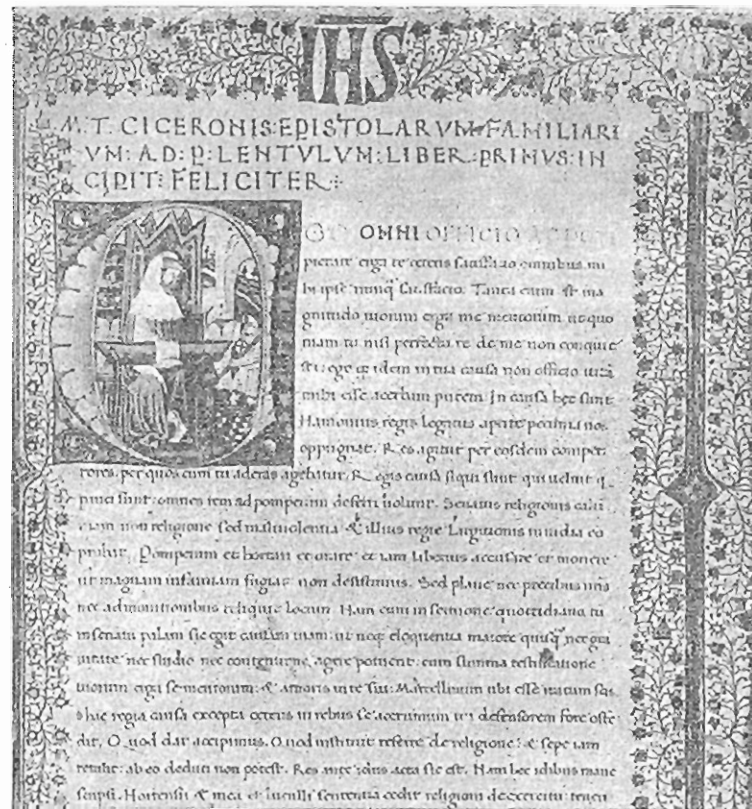 IHS
M. T. CICERONIS: EPISTOLARVM FAMILIARI
VM: AD: P: LENTVLVM: LIBER: PRIMVS: IN
CIPIT: FELICITER:
OMNI OFFICIO AC
pietate erga te ceteris satisfatio omnibus mi
hi ipse nunq̃ satisfacio. Tanta enim est ma
gnitudo tuorum erga me meritorum ut quo
niam tu nisi perfecta re de me non conquie
sti: ego in tua causa non
mihi esse acerbam putem. In causa hec sunt:
Hamonius regis legatus aperte pecunia nos
oppugnat. Res agitur per eosdem
tores: per quos cum tu aderas agebatur. Regis causa siqui sunt qui uelint q
pauci sunt: omnes rem ad pompeium deferri uolunt. Senatus religionis calu
niam non religione sed maliuolentia & illius regie largitionis inuidia co
probat. Pompeium et hortari et orare et iam liberius accusare et monere
ut magnam infamiam fugiat non desistimus. Sed plane nec precibus
nec admonitionibus relinquit locum. Nam cum in sermone quottidiano tu
in senatu palam sic egit causam tuam: ut neq eloquentia maiore quisq nec gra
uitate nec studio nec contentione agere potuerit: cum summa testificatione
tuorum erga se meritorum: & amoris in te sui: Marcellinum tibi esse iratum scis
hic regia causa excepta ceteris in rebus se acerrimum tui defensorem fore oste
dit. Quod dat accipimus. Quod instituit referre de religione: & sepe iam
retulit: ab eo deduci non potest. Res ante idus acta sic est. Nam hec idibus mane
scripsi. Hortensii & mea et luculli sententia cedit religioni de exercitu: teneri